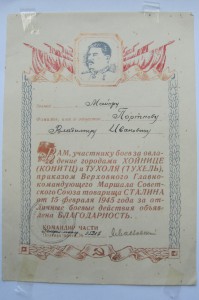 Майору
ВАМ, участнику боев за овла-
дение городами ХОЙНИЦЕ
(КОНИТЦ) и ТУХОЛЯ (ТУХЕЛЬ),
приказом Верховного Главно-
командующего Маршала Совет-
ского Союза товарища СТАЛИНА
от 15 февраля 1945 года за от-
личные боевые действия объяв-
лена БЛАГОДАРНОСТЬ.
КОМАНДИР ЧАСТИ